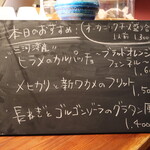 本日のおすすめ
オーガニックチーズ盛合
三河湾産
ヒラメのカルパッチョ
ブラッドオレンジ
フェンネル
メヒカリと新ワカメのフリット
1,50
長ねぎとゴルゴンゾーラのグラタン風
1,400